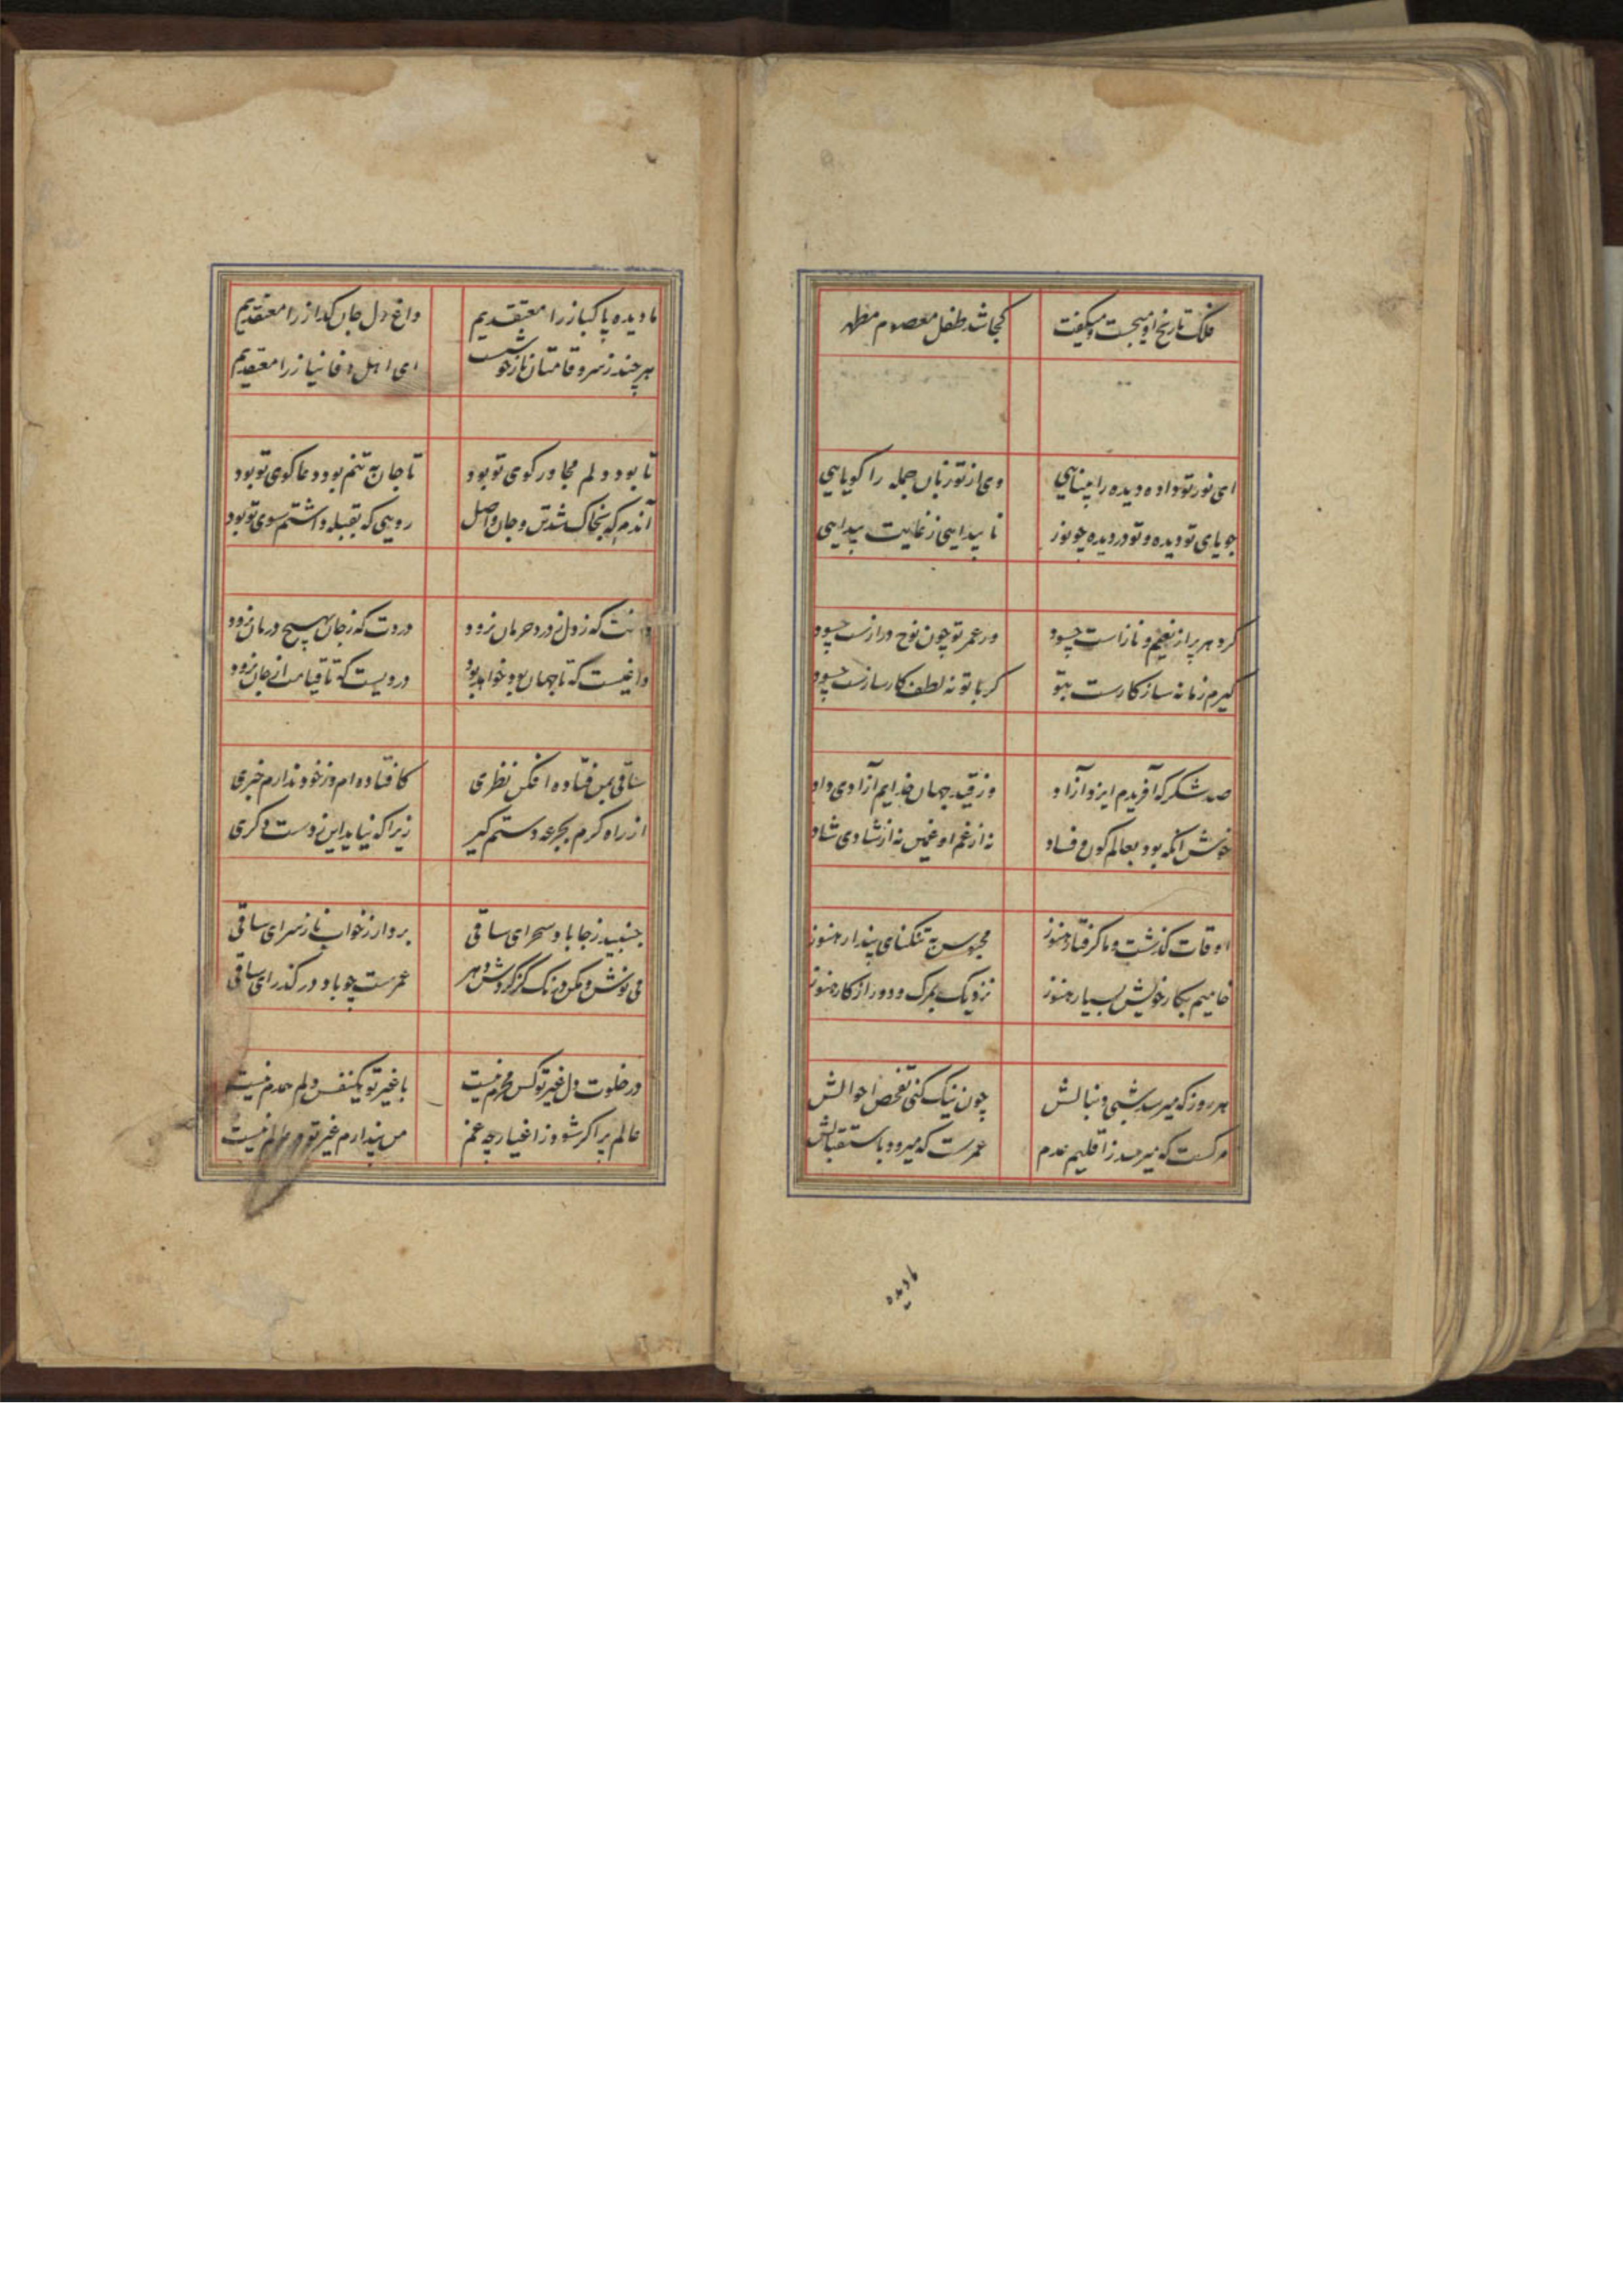 فلک تاریخ او میجست و میکفت کجا شد طفل معصوم مطهر
ای نور تو داده دیده را بینایی وی از تو زبان جمله را کویایی
جویای تو دیده و تو در دیده چو نور نا پیدایی ز غایت پیدایی
کر دهر پر از نعیم و نازاست چسود ور عمر تو چون نوح درازست چسود
کیرم زمانه ساز کارست بتو کر با تو نه لطف کارسازست چسود
صد شکر که آفریدم ایزد آزاد وز قید جهان خدایم آزادی داد
خوش انکه بود بعالم کون و فساد نه از غم او غمین نه از شادی شاد
اوقات کذشت و ما کرفتار هنوز محبوس به تنکنای پندار هنوز
خامیم بکار خویش بسیار هنوز نزدیک بمرک و دور از کار هنوز
هر روز که میرسد شبی دنبالش چون نیک کنی تفحص احوالش
مرکست که میرسد ز اقلیم عدم عمرست که میرود باستقبالش
مادیده
ما دیده پاکباز را معتقدیم داغ دل جان کداز را معتقدیم
هر چند ز سرو قامتان ناز خوشست ای اهل وفا نیاز را معتقدیم
تا بود دلم مجاور کوی تو بود تا جان به تنم بود دعا کوی تو بود
آندم که بخاک شد تن و جان واصل رویی که بقبله داشتم سوی تو بود
که ز دل نرود درد حرمان نرود دردت که ز جان بهیچ درمان نرود
داغیست که تا جهان بود خواهد بود دردیست که تا قیامت از جان نرود
ساقی بمن فتاده افکن نظری کافتاده ام وز خود ندارم خبری
از راه کرم بجرعه دستم کیر زیرا که نیاید این ز دست دکری
جنبید ز جا باد سحر ای ساقی بردار ز خواب ناز سر ای ساقی
می نوش و مکن درنک کز کردش دهر عمرست چو باد در کذر ای ساقی
در خلوت دل غیر تو کس محرم نیست با غیر تو یکنفس دلم همدم نیست
عالم پر اکر شود ز اغیار چه غم من پندارم غیر تو در عالم نیست